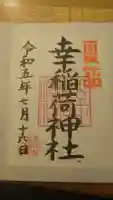 幸稲荷神社
令和五年七月十六日